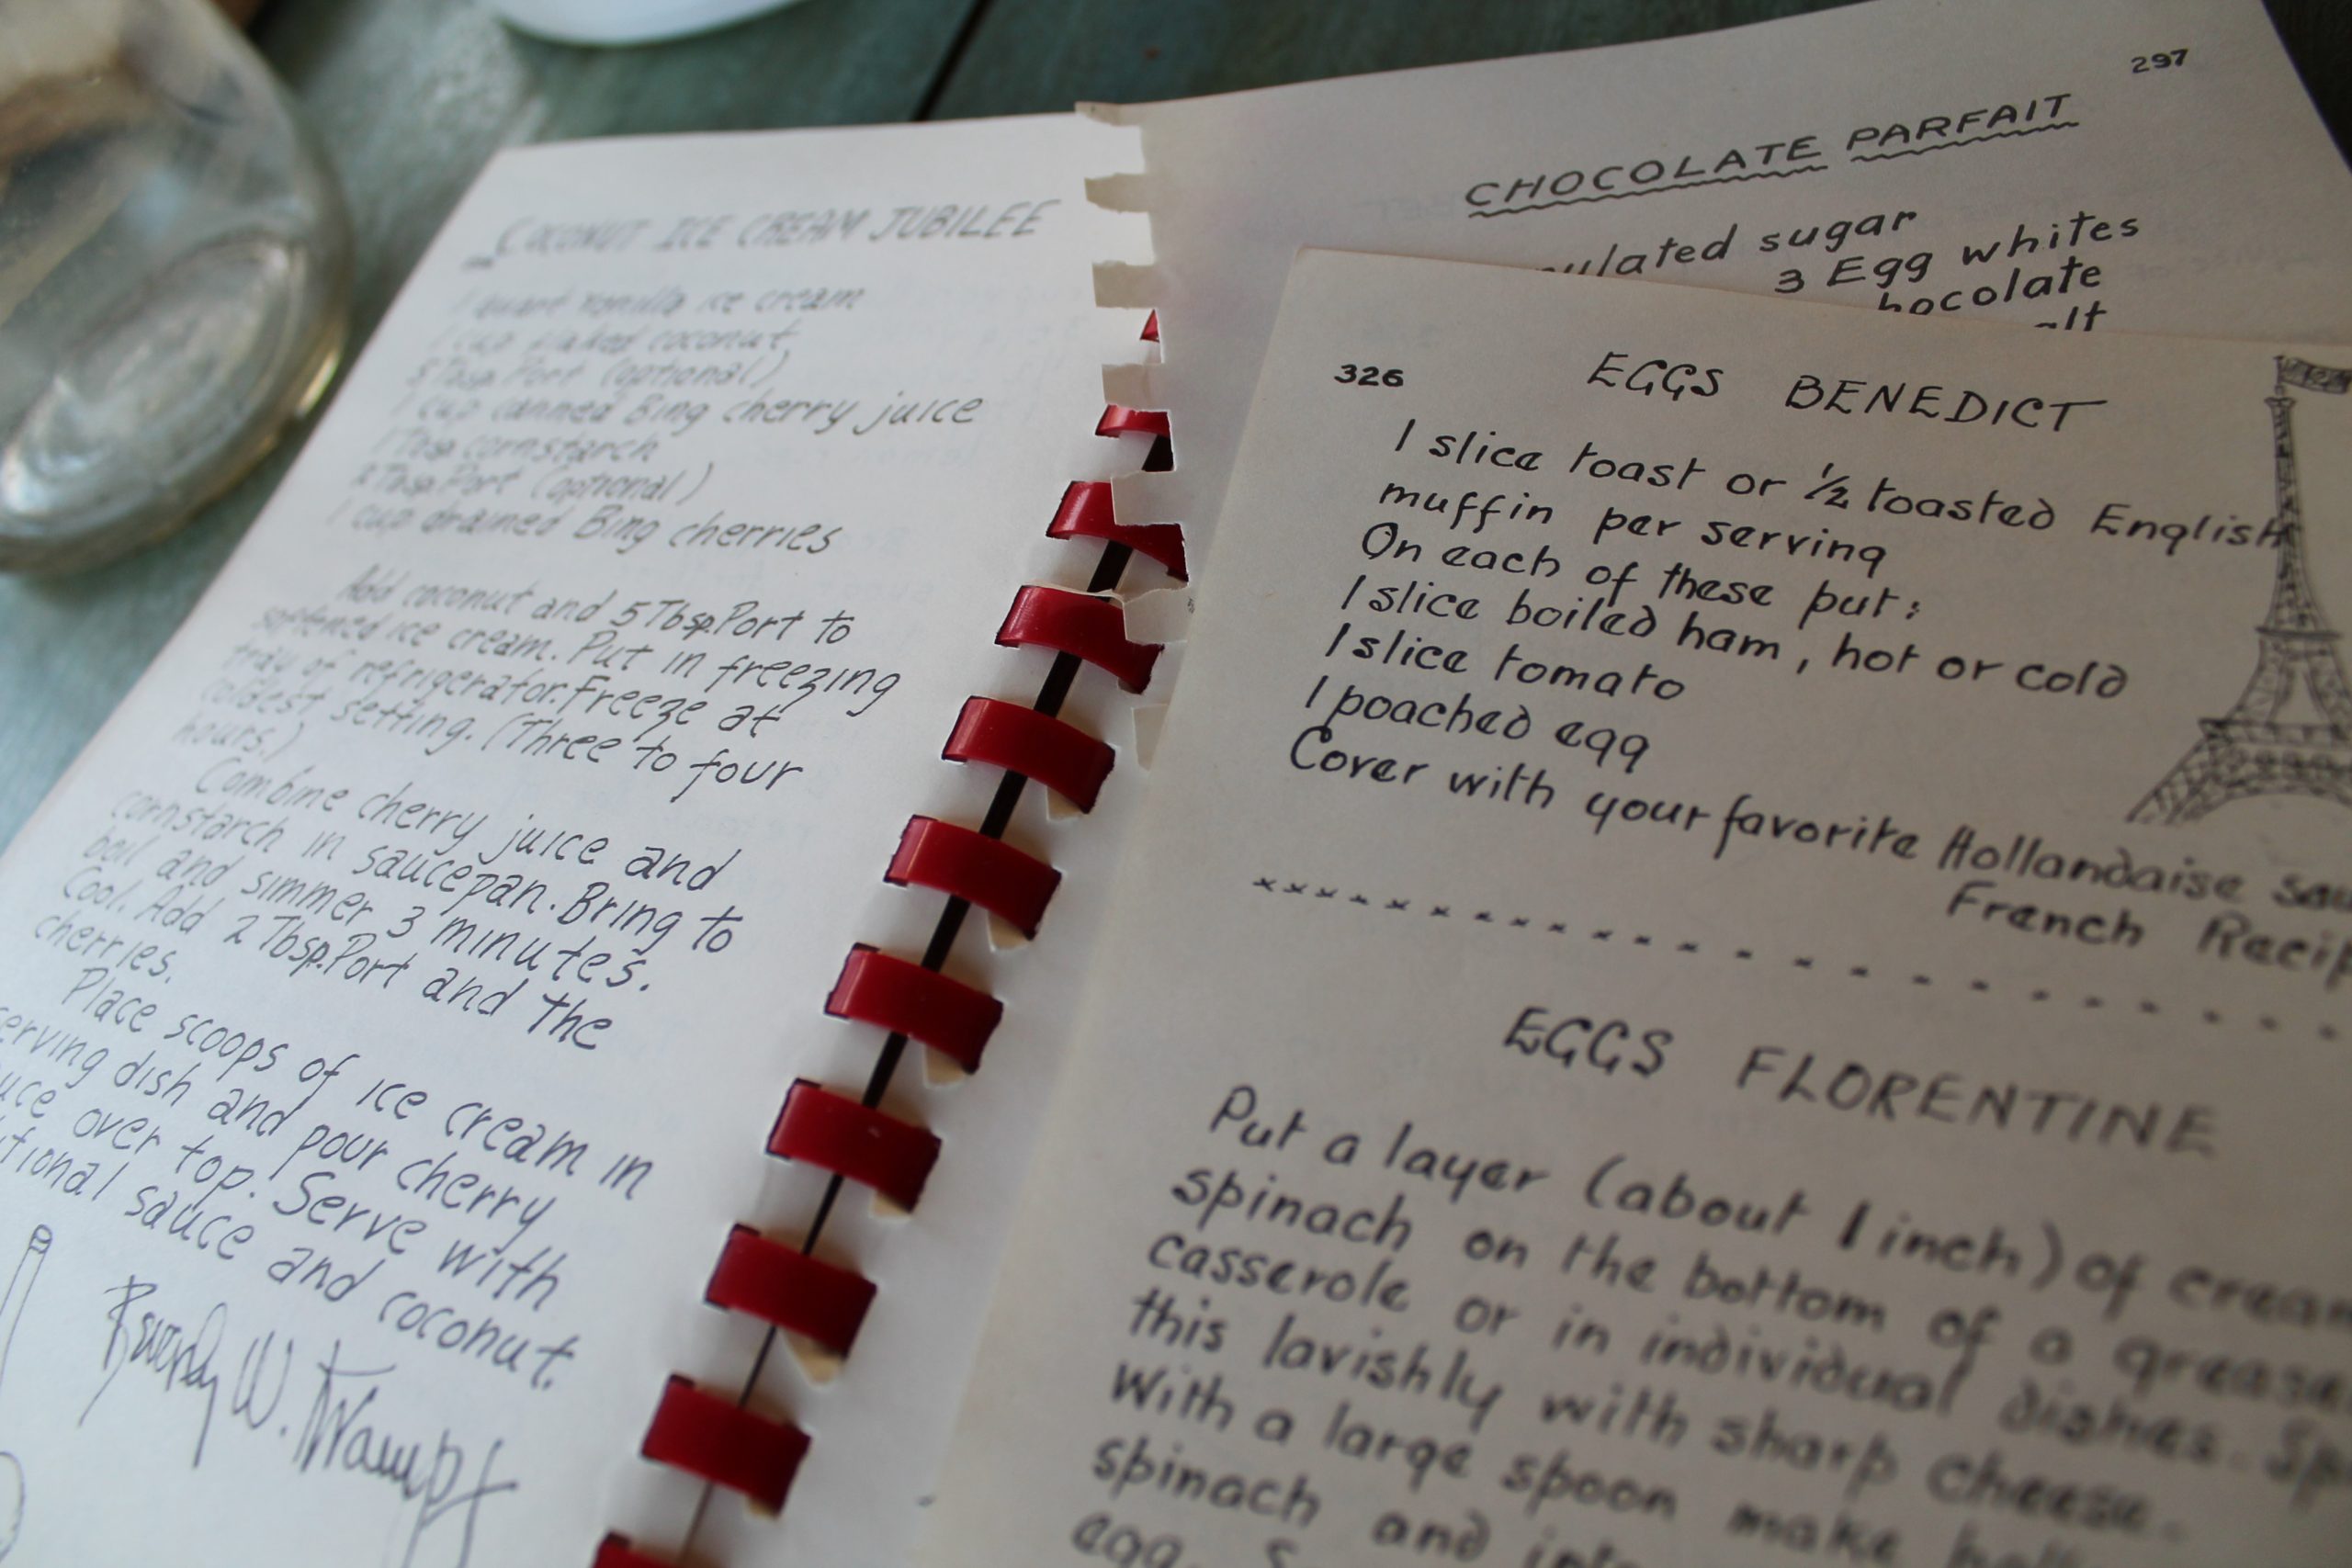 COCONUT ICE CREAM JUBILEE
1 quart vanilla ice cream
1 cup flaked coconut
5 Tbsp. Port (optional)
1 cup canned Bing cherry juice
1 Tbsp cornstarch
2 Tbsp. Port (optional)
1 cup drained Bing cherries
Add coconut and 5 Tbsp. Port to
softened ice cream. Put in freezing
tray of refrigerator. Freeze at
coldest setting. (Three to four
hours.)
Combine cherry juice and
cornstarch in saucepan. Bring to
boil and simmer 3 minutes.
Cool. Add 2 Tbsp. Port and the
cherries.
Place scoops of ice cream in
erving dish and pour cherry
uce over top. Serve with
tional sauce and coconut.
Beverly W.
297
CHOCOLATE PARFAIT
ulated sugar
3 Egg whites
hocolate
alt
326
EGGS BENEDICT
1 slice toast or 1/2 toasted English
muffin per serving
On each of these put:
1 slice boiled ham, hot or cold
1 slice tomato
1 poached egg
Cover with your favorite Hollandaise sau
French Recip
EGGS FLORENTINE
Put a layer (about 1 inch) of cream
spinach on the bottom of a grease
casserole or in individual dishes. Sp
this lavishly with sharp cheese.
With a large spoon make hol
spinach and into
egg. S